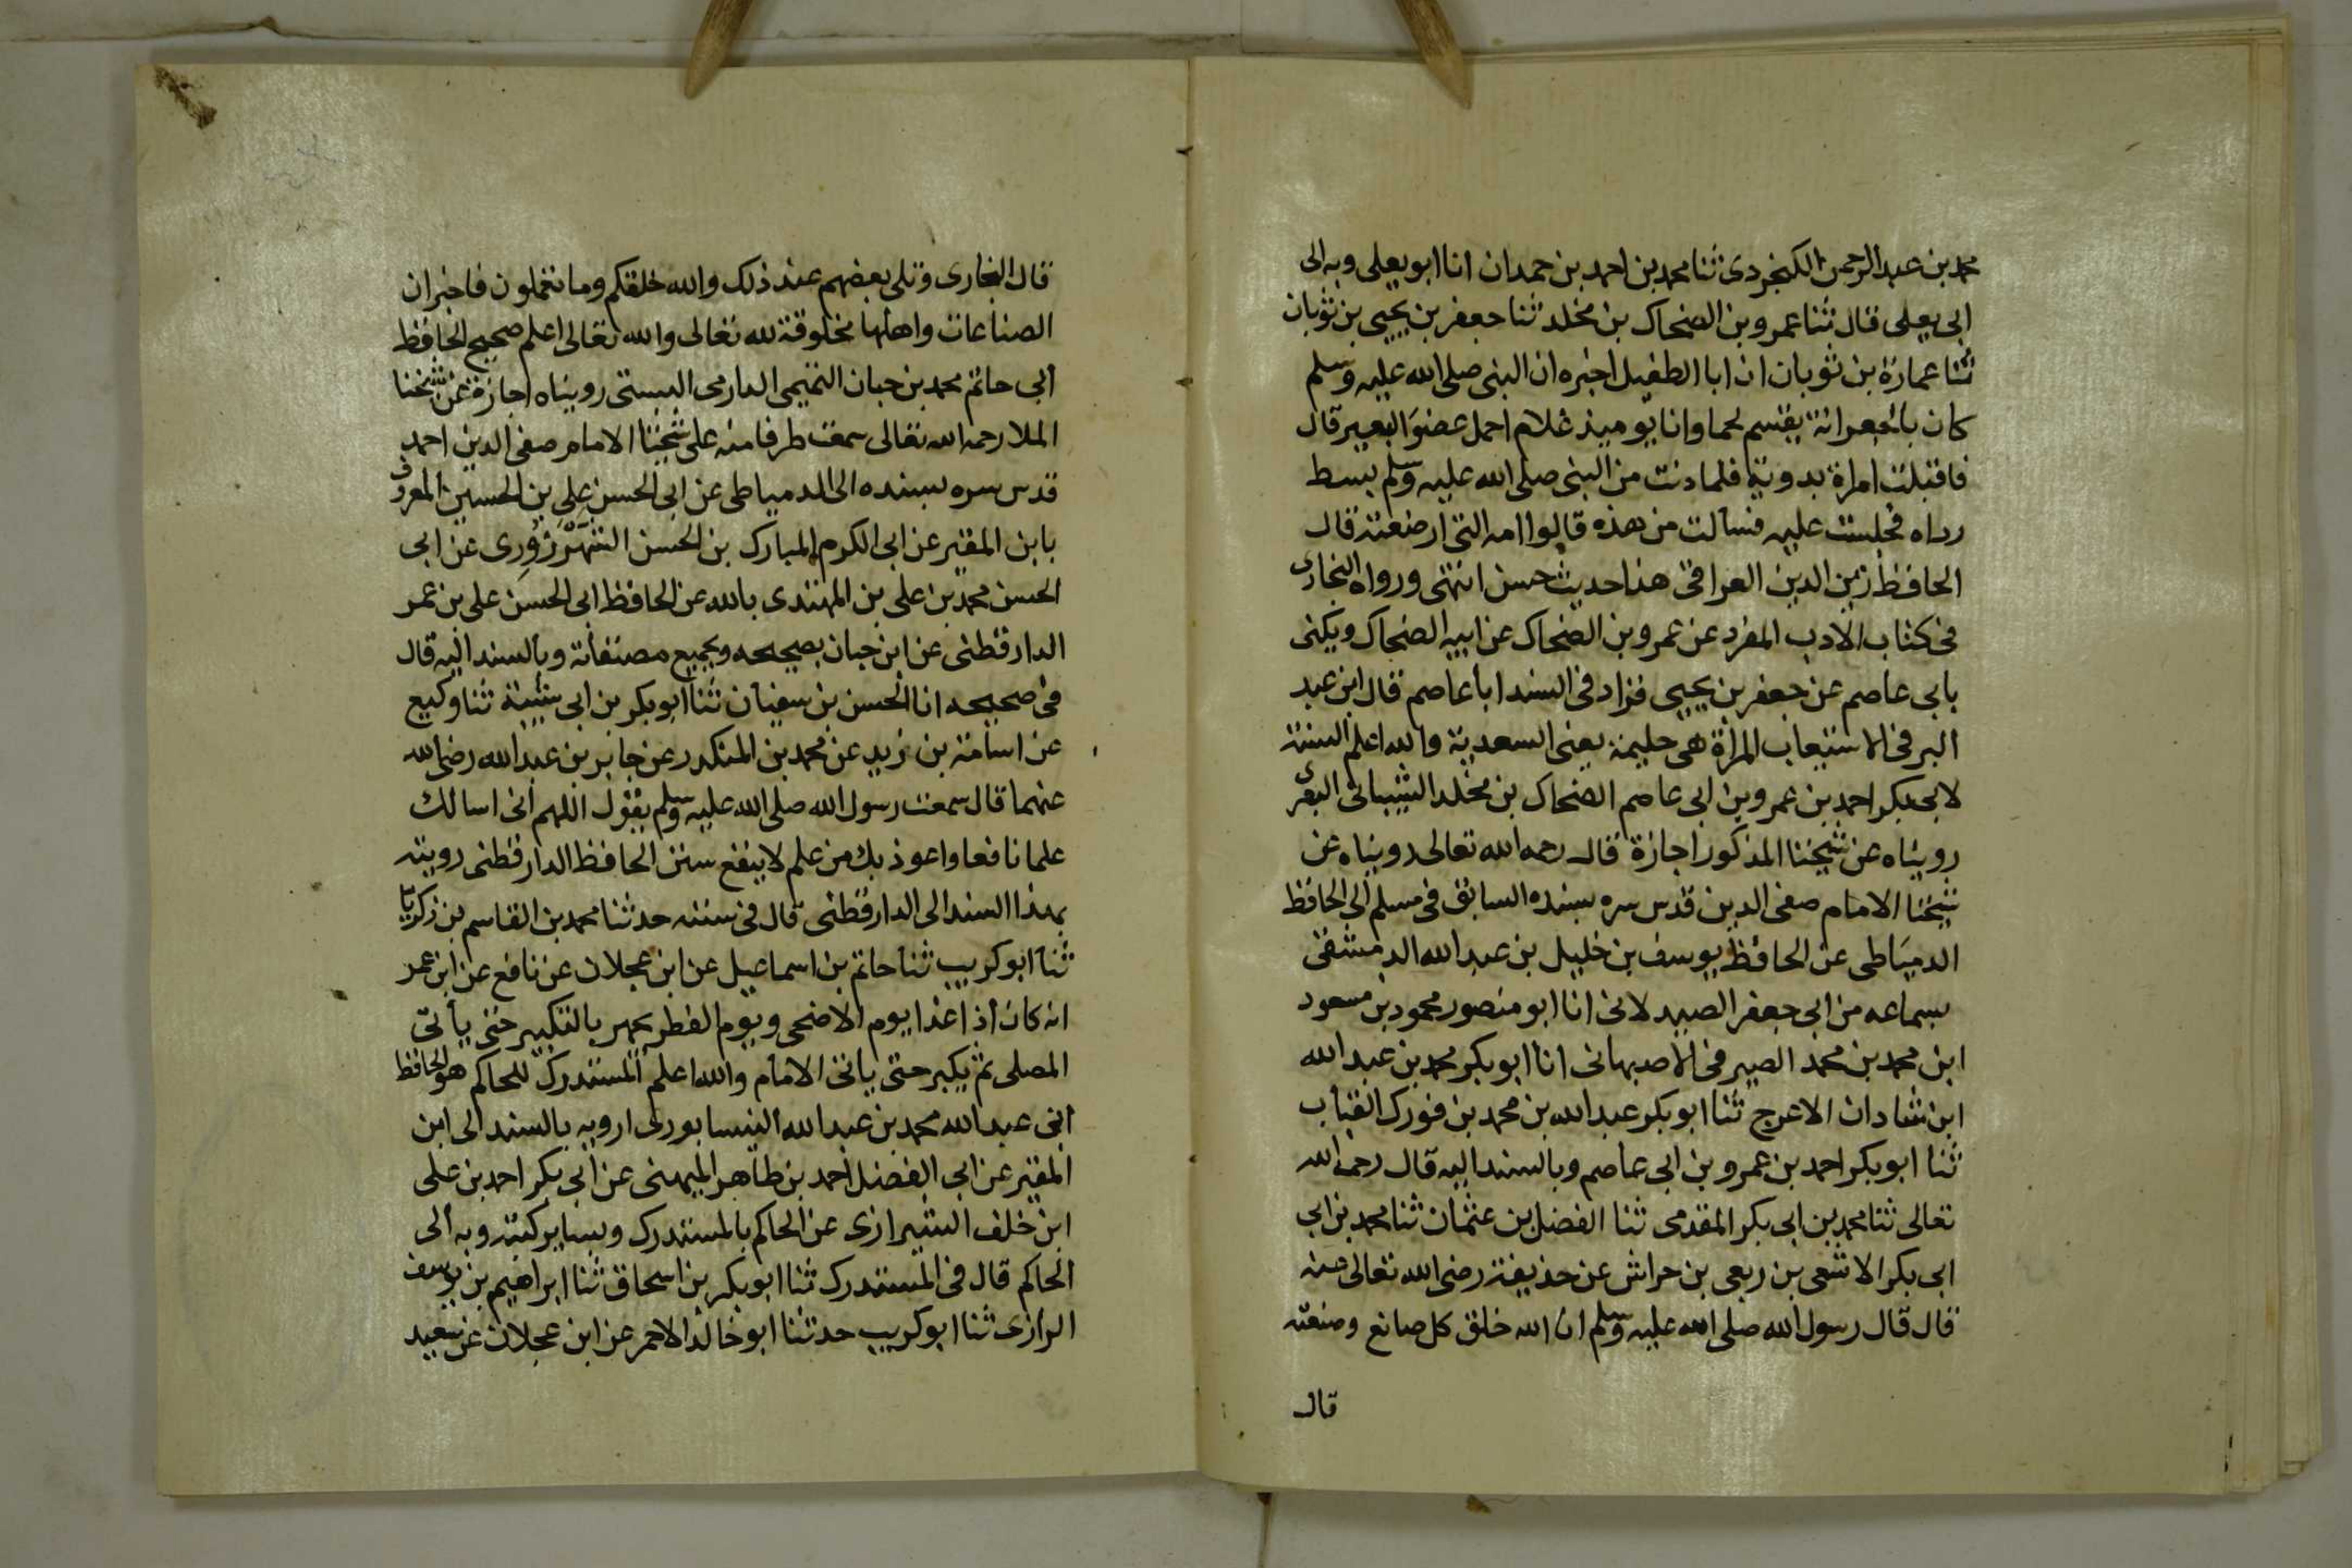 محمد بن عبد الرحمن الكنجردى ثنا محمد بن احمد بن حمدان انا ابو يعلى وبه الى
ابى يعلى قال ثنا عمرو بن الضحاك بن مخلد ثنا جعفر بن يحيى بن ثوبان
ثنا عمارة بن ثوبان ان ابا الطفيل اخبره ان النبى صلى الله عليه وسلم
كان بالجعرانة يقسم لحما وانا يوميذ غلام احمل عضو البعير قال
فاقبلت امراة بدوية فلما دنت من النبى صلى الله عليه وسلم بسط
رداه فجلست عليه فسالت من هذه قالوا امه التى ارضعته قال
الحافظ زين الدين العراقى هذا حديث حسن انتهى ورواه البخارى
فى كتاب الادب المفرد عن عمرو بن الضحاك عن ابيه الضحاك ويكنى
بابى عاصم عن جعفر بن يحيى فزاد فى السند ابا عاصم قال ابن عبد
البر فى الاستيعاب المرأة هى حليمة يعنى السعدية والله اعلم السنة
لابى بكر احمد بن عمرو بن ابى عاصم الضحاك بن مخلد الشيبانى البصرى
رويناه عن شيخنا المذكور اجازة قال رحمه الله تعالى رويناه عن
شيخنا الامام صفى الدين قدس سره بسنده السابق فى مسلم الى الحافظ
الدمياطى عن الحافظ يوسف بن خليل بن عبد الله الدمشقى
بسماعه من ابى جعفر الصيدلانى انا ابو منصور محمود بن مسعود
ابن محمد بن محمد الصيرفى الاصبهانى انا ابو بكر محمد بن عبد الله
ابن شاذان الاعرج ثنا ابو بكر عبد الله بن محمد بن فورك القباب
ثنا ابو بكر احمد بن عمرو بن ابى عاصم وبالسند اليه قال رحمه الله
تعالى ثنا محمد بن ابى بكر المقدمى ثنا الفضل بن عثمان ثنا محمد بن ابى
ابى بكر الاشعى بن ربعى بن حراش عن حذيفة رضى الله تعالى عنه
قال قال رسول الله صلى الله عليه وسلم ان الله خلق كل صانع وصنعته
قال
قال البخارى وتلى بعضهم عند ذلك والله خلقكم وما تعملون فاخبر ان
الصناعات واهلها مخلوقة لله تعالى والله تعالى اعلم صحيح الحافظ
ابى حاتم محمد بن حبان التميمى الدارمى البستى رويناه اجازة عن شيخنا
الملا رحمه الله تعالى سمعت طرفا منه على شيخنا الامام صفى الدين احمد
قدس سره بسنده الى الدمياطى عن ابى الحسن على بن الحسين المعروف
بابن المقير عن ابى الكرم المبارك بن الحسن الشهرزورى عن ابى
الحسن محمد بن على بن المهتدى بالله عن الحافظ ابى الحسن على بن عمر
الدارقطنى عن ابن حبان بصحيحه وبجميع مصنفاته وبالسند اليه قال
فى صحيحه انا الحسن بن سفيان ثنا ابو بكر بن ابى شيبة ثنا وكيع
عن اسامة بن زيد عن محمد بن المنكدر عن جابر بن عبد الله رضى الله
عنهما قال سمعت رسول الله صلى الله عليه وسلم يقول اللهم انى اسالك
علما نافعا واعوذ بك من علم لا ينفع سنن الحافظ الدارقطنى رويته
بهذا السند الى الدارقطنى قال فى سننه حدثنا محمد بن القاسم بن زكريا
ثنا ابو كريب ثنا حاتم بن اسماعيل عن ابن عجلان عن نافع عن ابن عمر
انه كان اذا غدا يوم الاضحى ويوم الفطر يجهر بالتكبير حتى يأتى
المصلى ثم يكبر حتى ياتى الامام والله اعلم المستدرك للحاكم هو الحافظ
ابى عبد الله محمد بن عبد الله النيسابورى ارويه بالسند الى ابن
المقير عن ابى الفضل احمد بن طاهر الميهنى عن ابى بكر احمد بن على
ابن خلف الشيرازى عن الحاكم بالمستدرك وبساير كتبه وبه الى
الحاكم قال فى المستدرك ثنا ابو بكر بن اسحاق ثنا ابراهيم بن يوسف
الرازى ثنا ابو كريب حدثنا ابو خالد الاحمر عن ابن عجلان عن سعيد